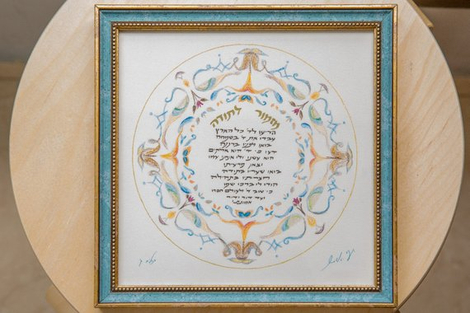 מזמור לתודה
הריעו לה' כל הארץ
עבדו את ה' בשמחה
באו לפניו ברננה
דעו כי ה' הוא אלהים
הוא עשנו ולו אנחנו עמו
וצאן מרעיתו
באו שעריו בתודה
חצרתיו בתהילה
הודו לו ברכו שמו
כי טוב ה' לעולם חסדו
ועד דור ודור
אמונתו